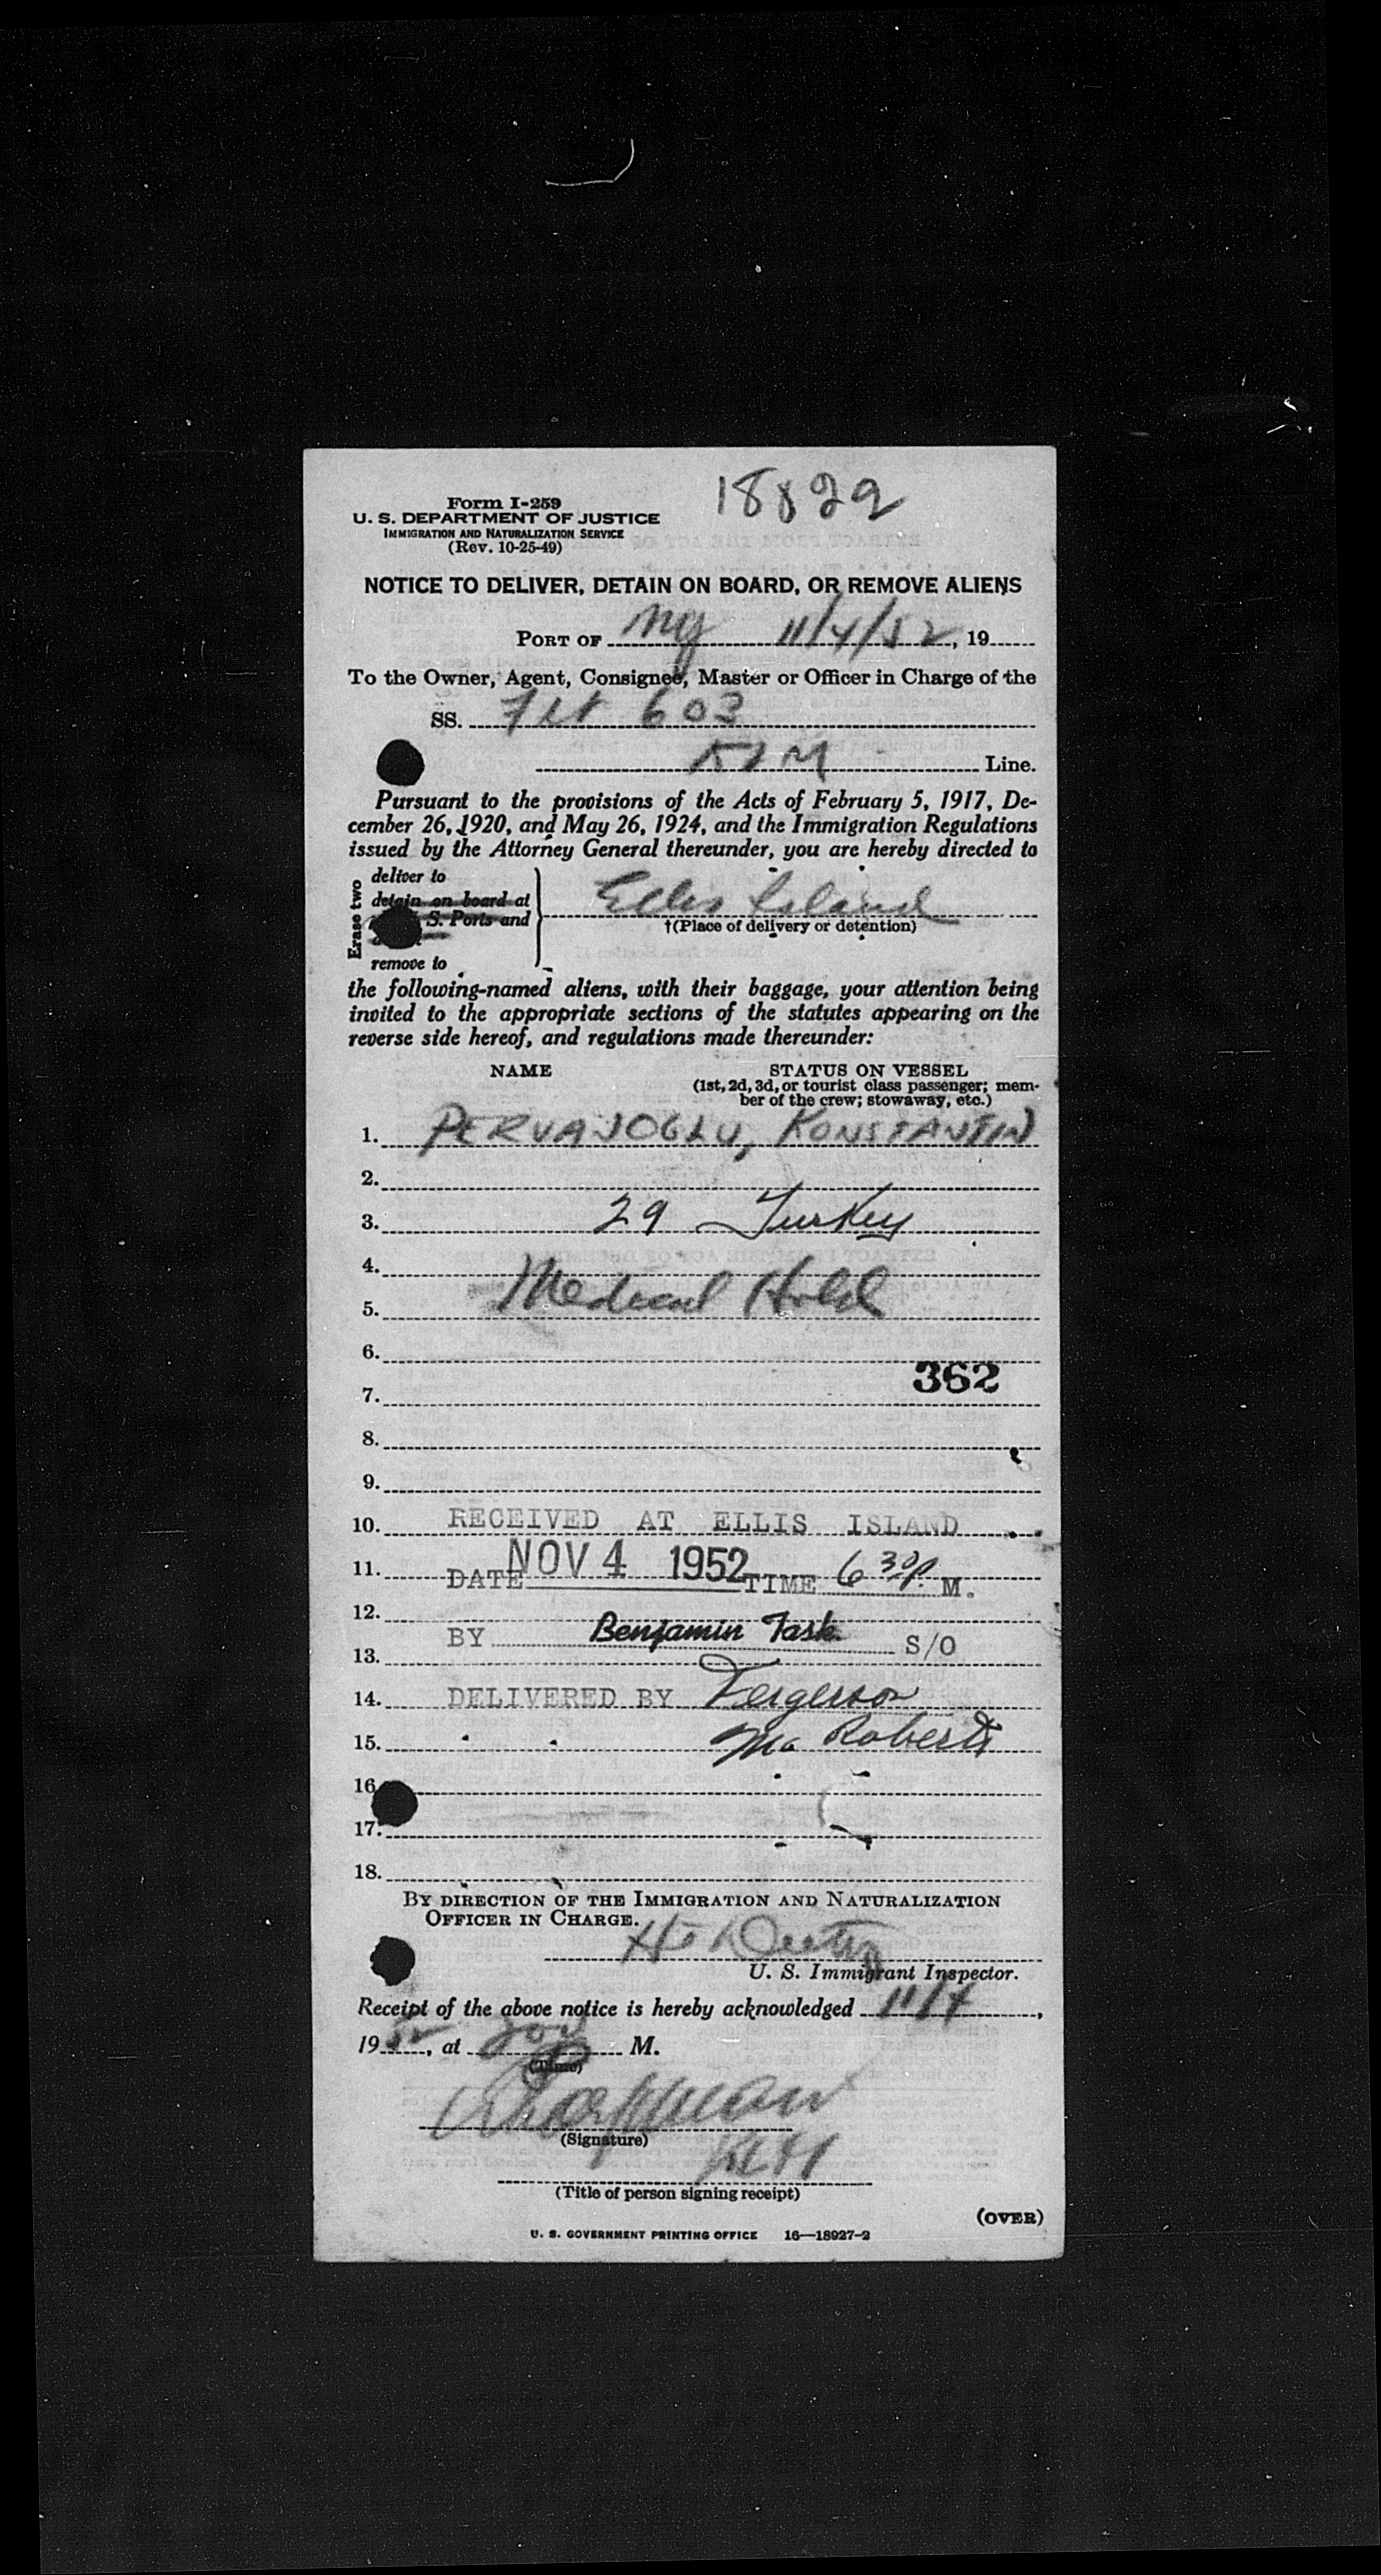 18822
Form I-259
U. S. DEPARTMENT OF JUSTICE
IMMIGRATION AND NATURALIZATION SERVICE
(Rev. 10-25-49)
NOTICE TO DELIVER, DETAIN ON BOARD, OR REMOVE ALIENS
PORT OF NY 11/4/52, 19
To the Owner, Agent, Consignee, Master or Officer in Charge of the
SS. Flt 603
KLM Line.
Pursuant to the provisions of the Acts of February 5, 1917, De-
cember 26, 1920, and May 26, 1924, and the Immigration Regulations
issued by the Attorney General thereunder, you are hereby directed to
Erase two
deliver to
detain on board at
S. Ports and
remove to
Ellis Island
†(Place of delivery or detention)
the following-named aliens, with their baggage, your attention being
invited to the appropriate sections of the statutes appearing on the
reverse side hereof, and regulations made thereunder:
NAME STATUS ON VESSEL
(1st, 2d, 3d, or tourist class passenger; mem-
ber of the crew; stowaway, etc.)
1. PERVAJOGLU, KONSTANTIN
2.
3. 29 Turkey
4.
5. Medical Hold
6.
362
7.
8.
9.
10. RECEIVED AT ELLIS ISLAND
11. DATE NOV 4 1952 TIME 6 30 P. M.
12.
BY Benjamin Task S/O
13.
14. DELIVERED BY Fergerson
15. Mc Roberts
16.
17.
18.
BY DIRECTION OF THE IMMIGRATION AND NATURALIZATION
OFFICER IN CHARGE.
U. S. Immigrant Inspector.
Receipt of the above notice is hereby acknowledged 11/4,
19 52, at M.
(Time)
(Signature)
(Title of person signing receipt)
(OVER)
U. S. GOVERNMENT PRINTING OFFICE 16—18927-2